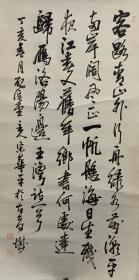 客路青山外行舟緑水前潮平
兩岸闊風正一帆懸海日生殘
夜江春入舊年鄉書何處達
歸雁洛陽邊王灣詩一首
丁亥春月